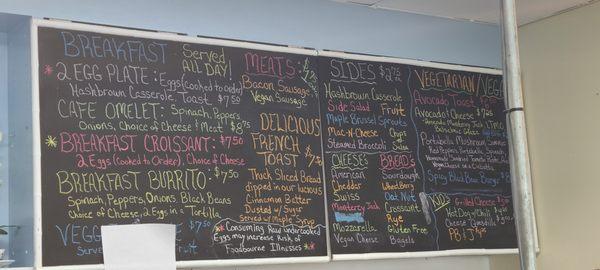 BREAKFAST Served ALL DAY!
* 2 EGG PLATE: Eggs (cooked to order)
Hashbrown Casserole, Toast $7.50
CAFE OMELET: Spinach, Peppers,
Onions, Choice of Cheese & Meat $8.75
* BREAKFAST CROISSANT: $7.50
2 Eggs (Cooked to Order), Choice of Cheese
BREAKFAST BURRITO: $7.50
Spinach, Peppers, Onions, Black Beans
Choice of Cheese, 2 Eggs in a Tortilla
VEGG
$7.50
Serve
Fruit
MEATS:
Bacon Sausage
Vegan Sausage
DELICIOUS
FRENCH
TOAST
Thick Sliced Bread
dipped in our luscious
Cinnamon Batter
Dusted w/ Sugar
Served w/ Maple Syrup
* Consuming Raw or undercooked
Eggs may increase Risk of
Foodbourne Illnesses *
SIDES $2.75 ea
Hashbrown Casserole
Side Salad
Fruit
Maple Brussel Sprouts
Mac-n-Cheese
Chips & Salsa
Steamed Broccoli
CHEESE'S
American
Cheddar
Swiss
Monterey Jack
Mozzarella
Vegan Cheese
BREAD'S
Sourdough
Wheatberry
Oat Nut
Croissant
Rye
Gluten Free
Bagels
VEGETARIAN/VEG
Avocado Toast
Avocado & Cheese $7.25
Balsamic Glaze
Portabella Mushroom
Spicy Black Bean Burger
KID
Grilled Cheese
Hot Dog w/ Chili
Cheese Quesadilla
PB & J